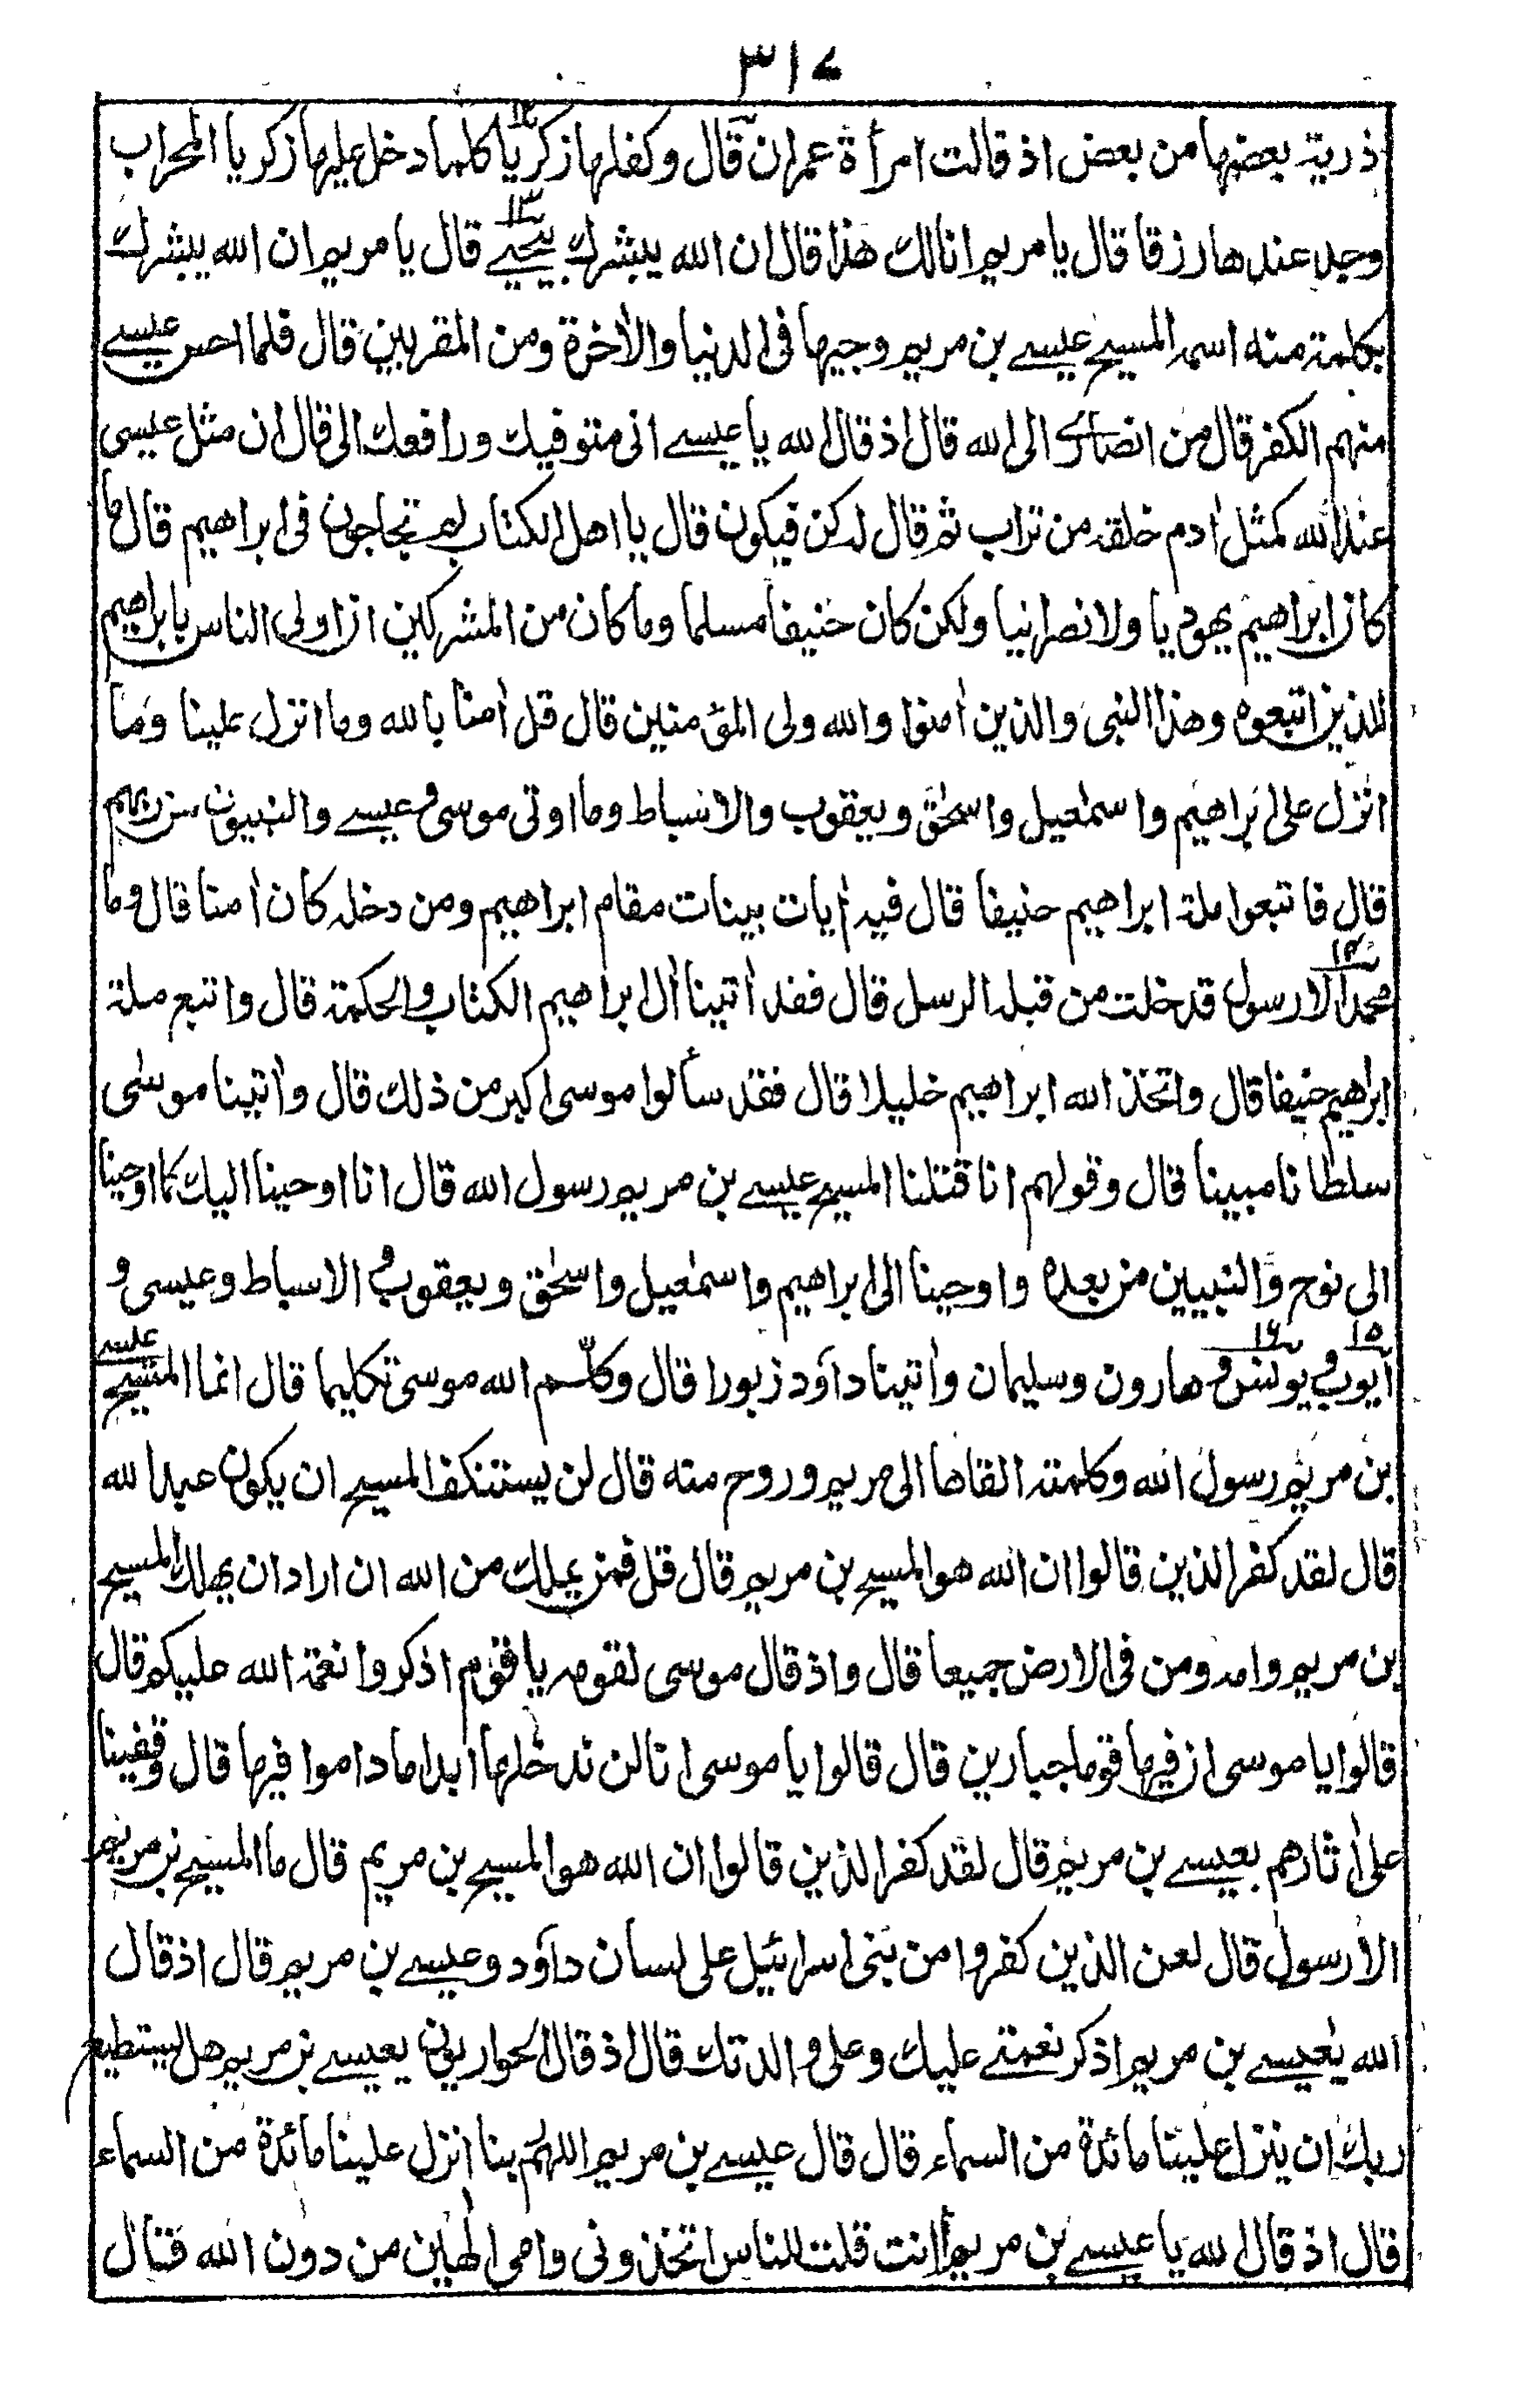 ٣١٧
ذرية بعضها من بعض اذ قالت امرأة عمران قال وكفلها زكريا كلما دخل عليها زكريا المحراب
١٣
وجد عندها رزقا قال يا مريم انا لك هذا قال ان الله يبشرك بيحيے قال يا مريم ان الله يبشرك
بكلمة منه اسمه المسيح عيسے بن مريم وجيها فى الدنيا والاٰخرة ومن المقربين قال فلما احس عيسے
منهم الكفر قال من انصارى الى الله قال اذ قال الله يا عيسے انى متوفيك ورافعك الى قال ان مثل عيسى
عند الله كمثل اٰدم خلقه من تراب ثم قال له كن فيكون قال يا اهل الكتاب لم تحاجون فى ابراهيم قال ما
كان ابراهيم يهوديا ولا نصرانيا ولكن كان حنيفا مسلما وما كان من المشركين ان اولى الناس بابراهيم
للذين اتبعوه وهذا النبى والذين اٰمنوا والله ولى المؤمنين قال قل اٰمنا بالله وما انزل علينا وما
انزل على ابراهيم واسمٰعيل واسحٰق ويعقوب والاسباط وما اوتى موسى وعيسے والنبيون من ربهم
قال فاتبعوا ملة ابراهيم حنيفا قال فيه اٰيات بينات مقام ابراهيم ومن دخله كان اٰمنا قال وما
١٤
محمد الا رسول قد خلت من قبله الرسل قال فقد اٰتينا اٰل ابراهيم الكتاب والحكمة قال واتبع ملة
ابراهيم حنيفا قال واتخذ الله ابراهيم خليلا قال فقد سألوا موسى اكبر من ذلك قال واٰتينا موسٰى
سلطانا مبينا قال وقولهم انا قتلنا المسيح عيسے بن مريم رسول الله قال انا اوحينا اليك كما اوحينا
الى نوح والنبيين من بعده واوحينا الى ابراهيم واسمٰعيل واسحٰق ويعقوب والاسباط وعيسى و
١٥ ١٦
ايوب ويونس وهارون وسليمان واٰتينا داٰود زبورا قال وكلّم الله موسى تكليما قال انما المسيح عيسے
بن مريم رسول الله وكلمته القاها الى مريم وروح منه قال لن يستنكف المسيح ان يكون عبدا لله
قال لقد كفر الذين قالوا ان الله هو المسيح بن مريم قال قل فمن يملك من الله ان اراد ان يهلك المسيح
بن مريم وامه ومن فى الارض جميعا قال واذ قال موسى لقومه يا قوم اذكروا نعمة الله عليكم قال
قالوا يا موسى ان فيها قوما جبارين قال قالوا يا موسى انا لن ندخلها ابدا ما داموا فيها قال وقفينا
على اٰثارهم بعيسے بن مريم قال لقد كفر الذين قالوا ان الله هو المسيح بن مريم قال ما المسيح بن مريم
الا رسول قال لعن الذين كفروا من بنى اسرائيل على لسان داٰود وعيسے بن مريم قال اذ قال
الله يٰعيسے بن مريم اذكر نعمتے عليك وعلى والدتك قال اذ قال الحواريون يعيسے بن مريم هل يستطيع
ربك ان ينزل علينا مائدة من السماء قال قال عيسے بن مريم اللهم ربنا انزل علينا مائدة من السماء
قال اذ قال الله يا عيسے بن مريم أانت قلت للناس اتخذونى وامى الٰهين من دون الله فتال